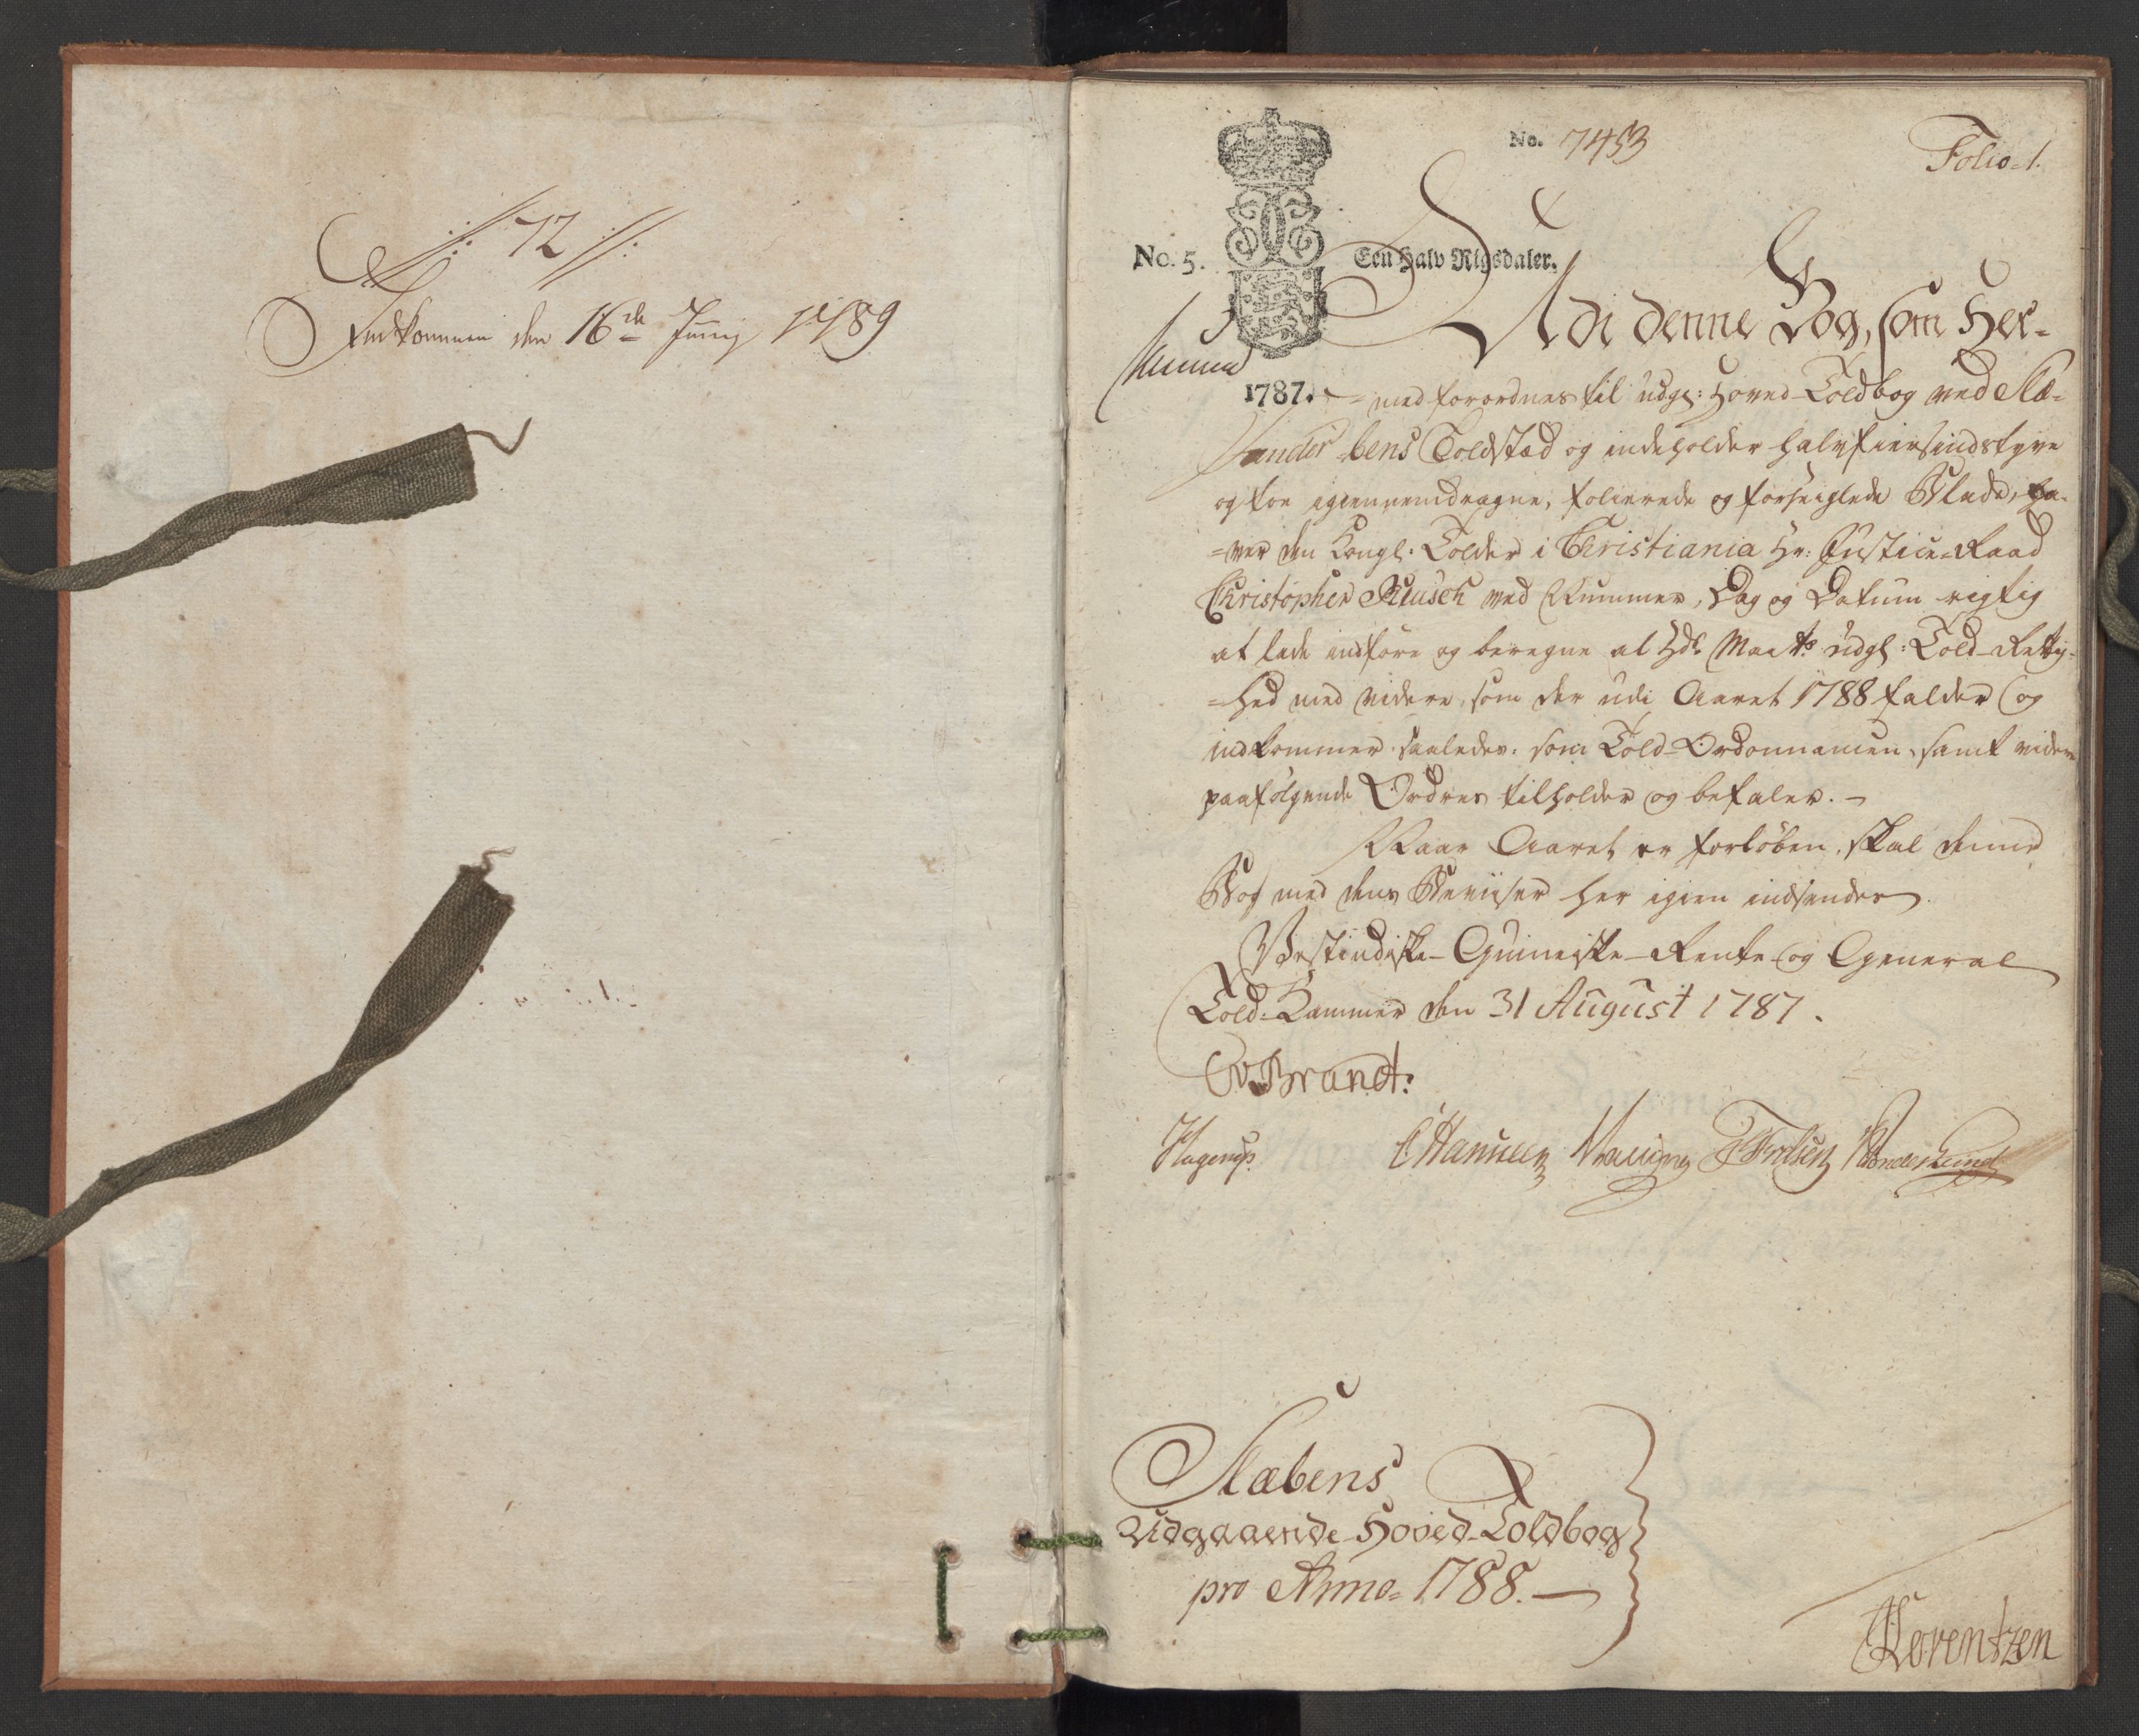 //: 72 //:
Indkommen den 16de Junij 1789
No. 7453
Folio-1.
No. 5.
Een Halv Rigsdaler.
1787.
Udi denne Bog, som Her-
=med forordnes til udg: Hoved-Toldbog ved Slæ-
bens Toldsted og indeholder halvfiersindstyve
og toe igiennemdragne, folierede og forseiglede Blade, ha-
=ver den Kongl. Tolder i Christiania Hr. Justice-Raad
Christopher Reusch med Nummer, Dag og Datum rigtig
at lade indføre og beregne al Hds. Maits. udg: Told-Rettig-
=hed med videre, som der udi Aaret 1788 falder og
indkommer saaledes som Told-Ordonnancen, samt videre
paafølgende Ordres tilholder og befaler.-
Naar Aaret er forløben, skal denne
Bog med dens Beviiser her igien indsendes.
Vestindiske-Guineiske-Rente og General
Told-Kammer den 31 August 1787.
CvBrandt:
Hagerup.
CHansen
Slæbens
Udgaaende Hoved-Toldbog
pro Anno=1788.-
Lorentzen